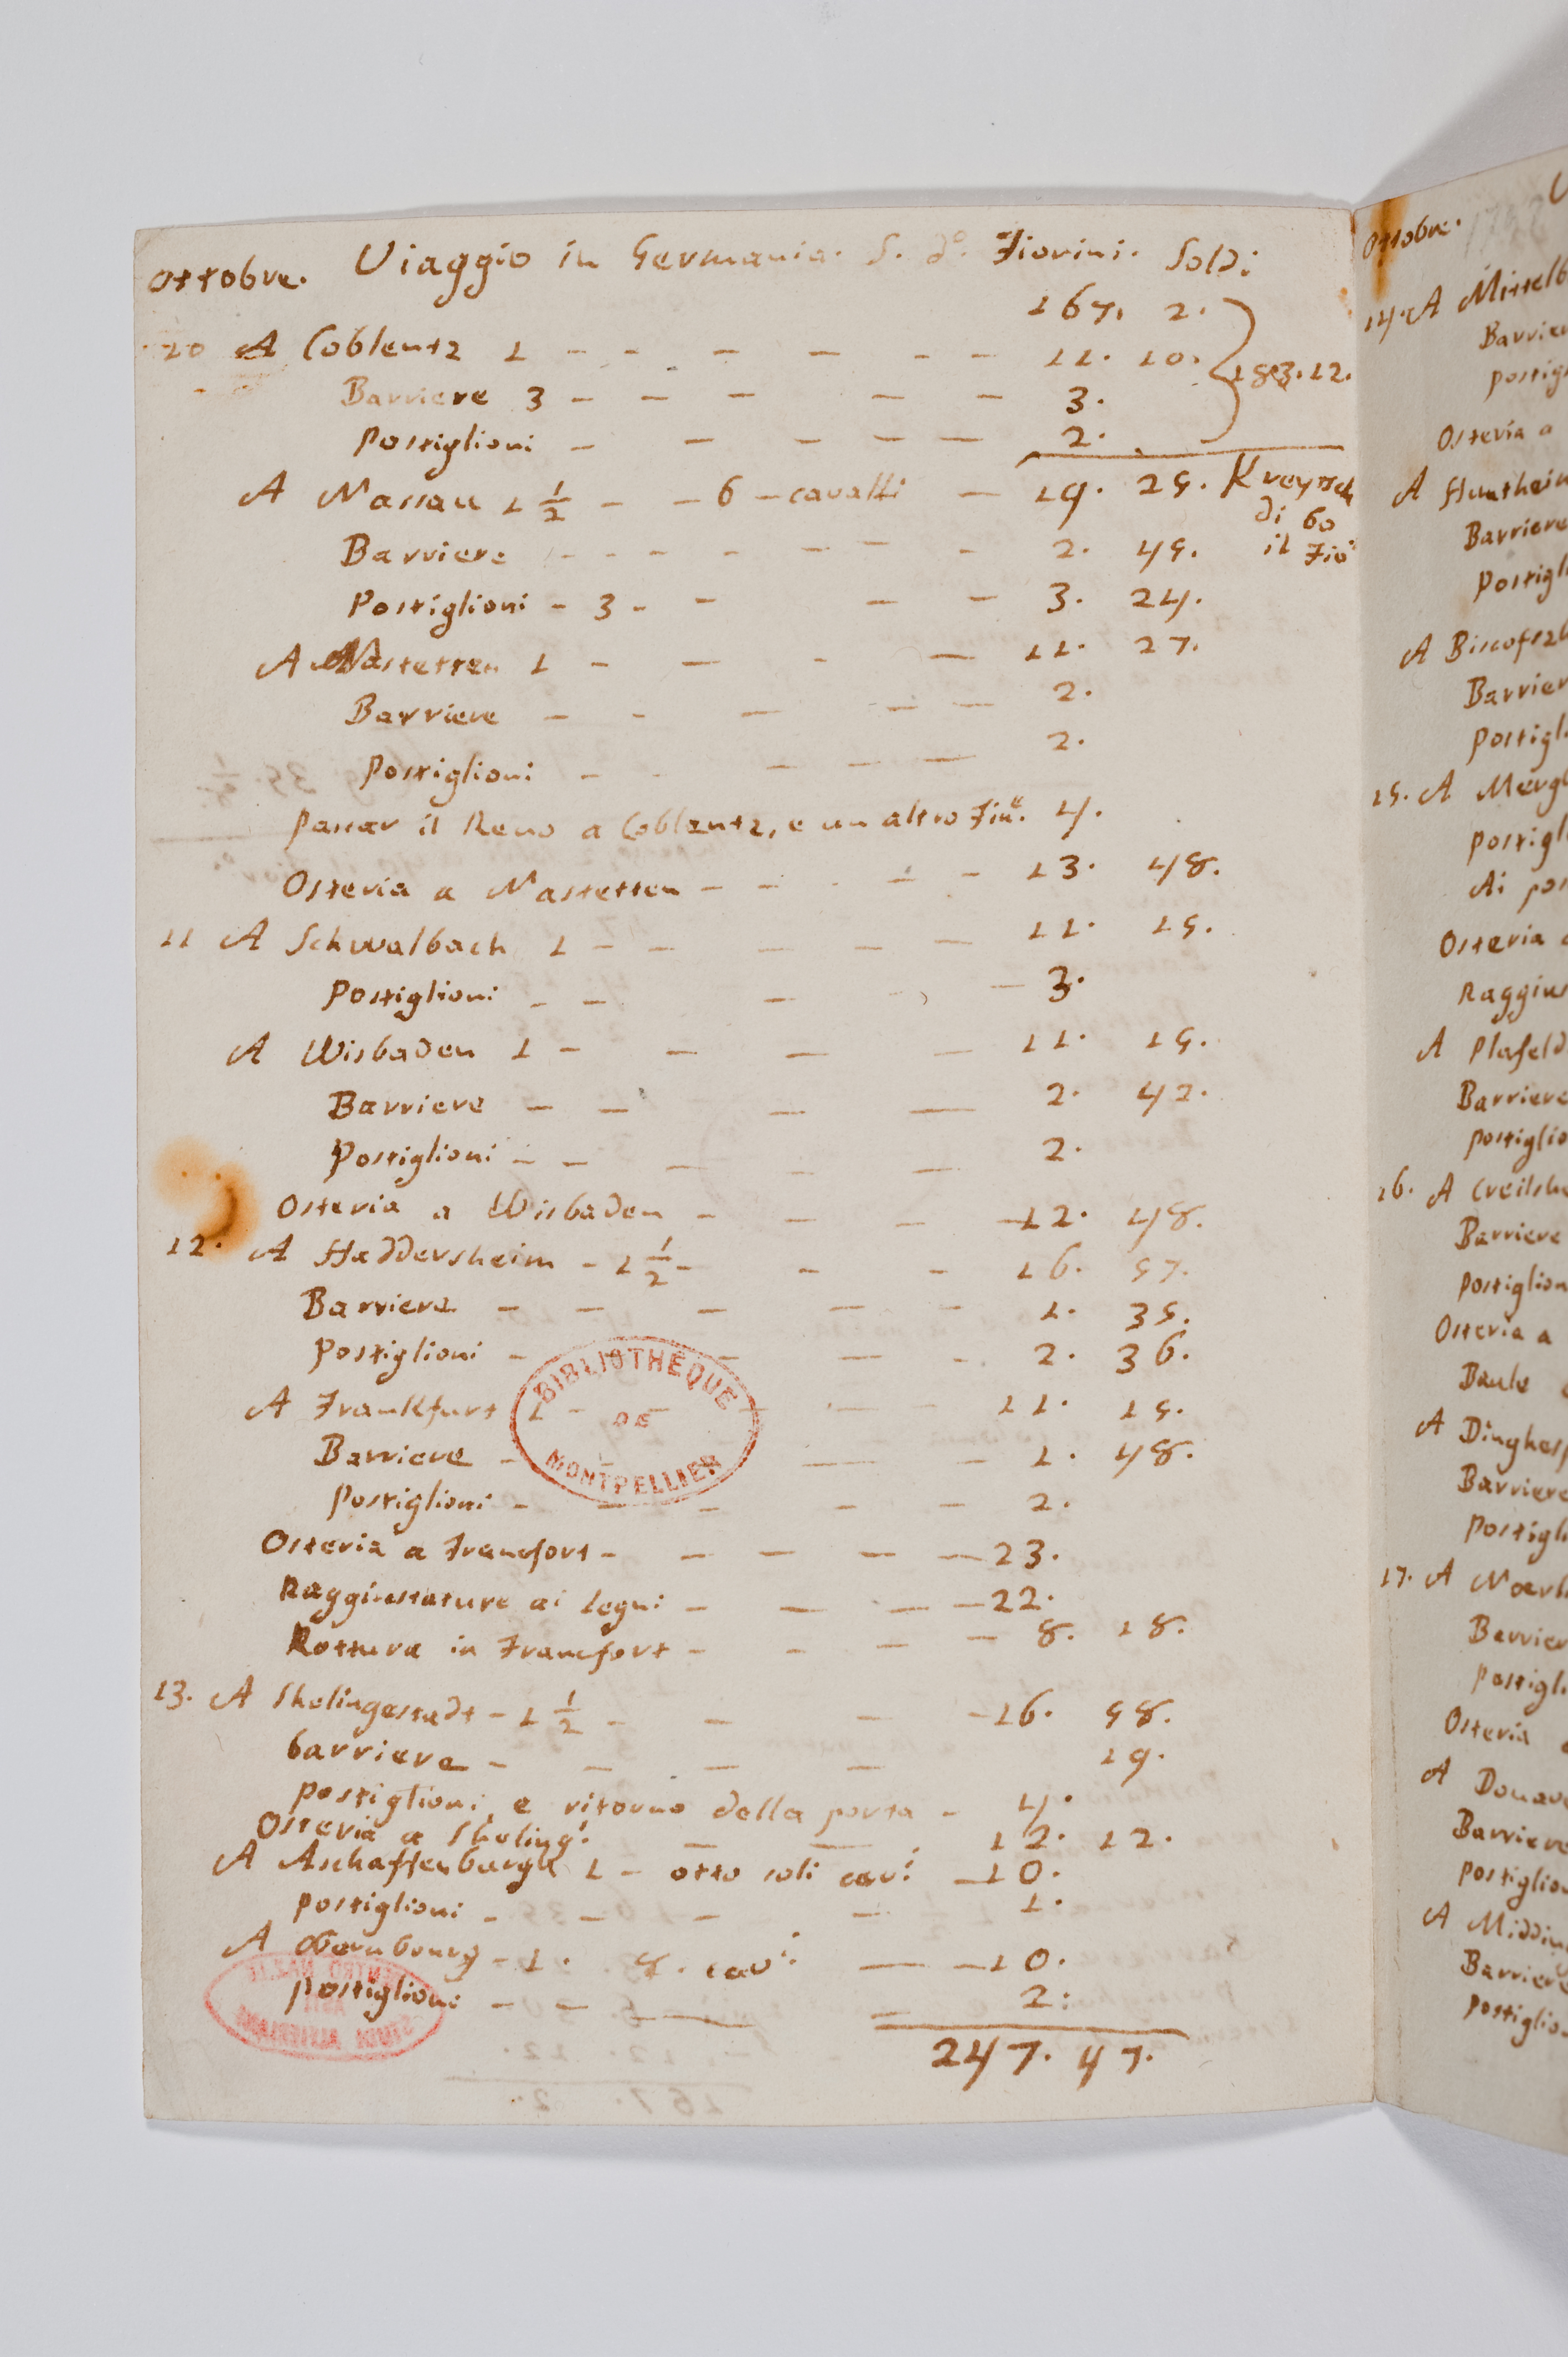 Ottobre. Viaggio in Germania. S. d.º Fiorini. Soldi
167. 2.
10 A Coblentz 1 - - - - - - 11. 10. 183. 12.
Barriere 3 - - - - - 3.
Postiglioni - - - - - 2.
A Nassau 1 1/2 - - 6 - cavalli - 19. 25. Kreytsch
di 60
il Fio
Barriere - - - - - - - 2. 45.
Postiglioni - 3 - - - - 3. 24.
A Nastetten 1 - - - - 11. 27.
Barriere - - - - - 2.
Postiglioni - - - - - 2.
Passar il Reno a Coblentz, e un altro Fiu.e 4.
Osteria a Nastetten - - - - - 13. 48.
11 A Schwalbach 1 - - - - - 11. 15.
Postiglioni - - - - 3.
A Wisbaden 1 - - - - 11. 15.
Barriere - - - - 2. 42.
Postiglioni - - - - - 2.
Osteria a Wisbaden - - - - 12. 48.
12. A Haddersheim - 1 1/2 - - - 16. 57.
Barriere - - - - - 1. 35.
Postiglioni - - - - 2. 36.
A Frankfurt 1 - - - - - 11. 15.
Barriere - - - - 1. 48.
Postiglioni - - - - - 2.
Osteria a Francfort - - - - - 23.
Raggiustature ai legni - - - - 22.
Rottura in Francfort - - - - 8. 18.
13. A Shelingestadt - 1 1/2 - - - - 16. 58.
barriere - - - - 19.
postiglioni, e ritorno della porta - 4.
Osteria a Sheling.i - - 12. 12.
A Aschaffenburgh 1 - otto soli cav.i - 10.
postiglioni - - - - 1.
A Obernbourg - 1. 8. cav.i - - 10.
postiglioni - - - - 2.
247. 47.
BIBLIOTHEQUE
DE
MONTPELLIER
Ottobre.
14. A Mittelb
Barrier
postigl
Osteria a
A Hunthein
Barriere
Postigl
A Biscofszb
Barrier
postigl
15. A Mergl
postigl
Ai pos
Osteria
Raggius
A Plafeld
Barriere
postiglio
16. A Creilshe
Barriere
postiglion
Osteria a
Baule
A Dinghesp
Barriere
Postigli
17. A Noerl
Barrier
postigli
Osteria
A Donave
Barriere
postiglio
A Middin
Barriere
postiglio